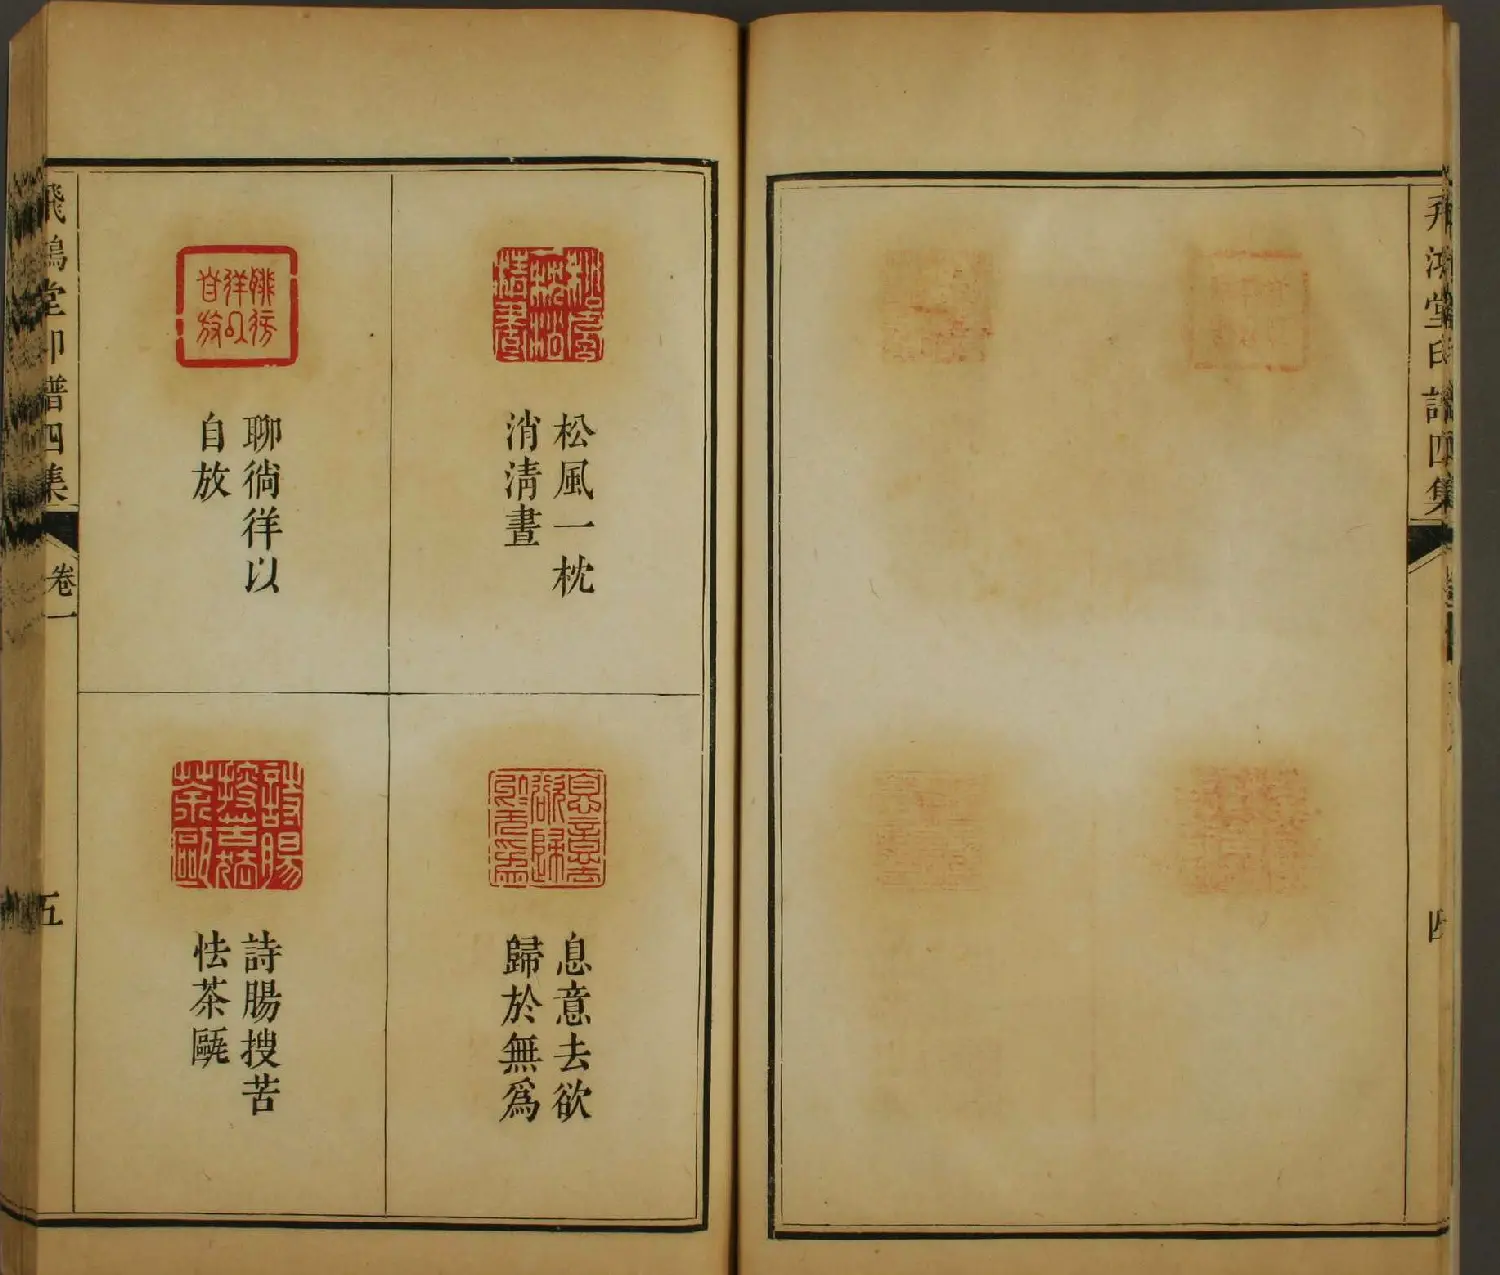 飛鴻堂印譜四集
四
松風一枕
消清晝
聊徜徉以
自放
息意去欲
歸於無爲
詩腸搜苦
怯茶甌
飛鴻堂印譜四集
卷一
五